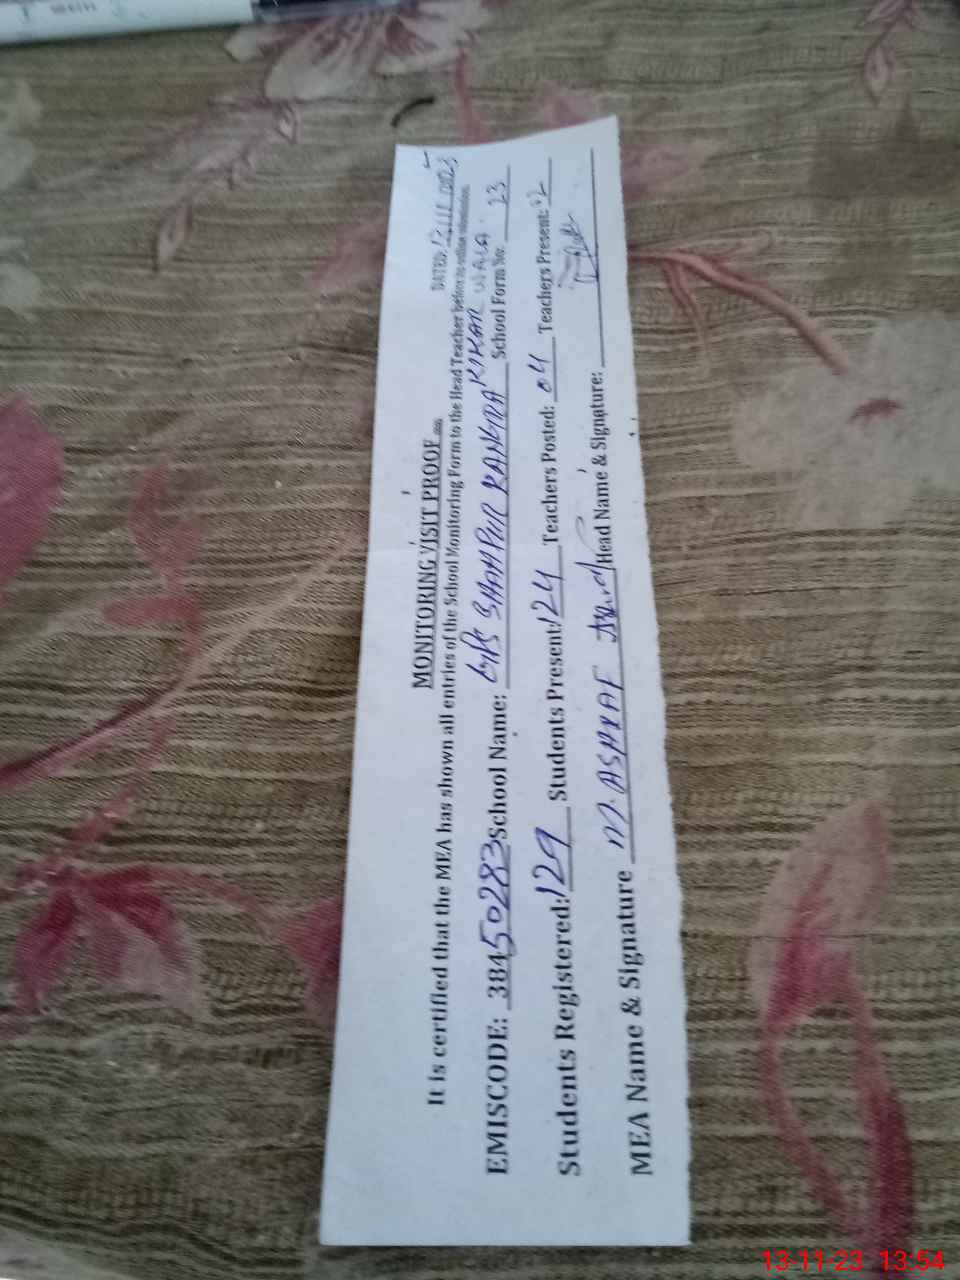 MONITORING VISIT PROOF
DATED: 13/11/2023
It is certified that the MEA has shown all entries of the School Monitoring Form to the Head Teacher before its online submission.
EMISCODE: 38450283 School Name: GPS SHAHPUR RANGRA KIKAR WALA School Form No: 23
Students Registered: 129 Students Present: 124 Teachers Posted: 04 Teachers Present: 02
MEA Name & Signature M. ASHRAF Head Name & Signature:
13-11-23 13:54